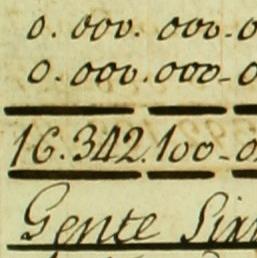 0.000.000-0
0.000.000-0
16.342.100-0
Gente